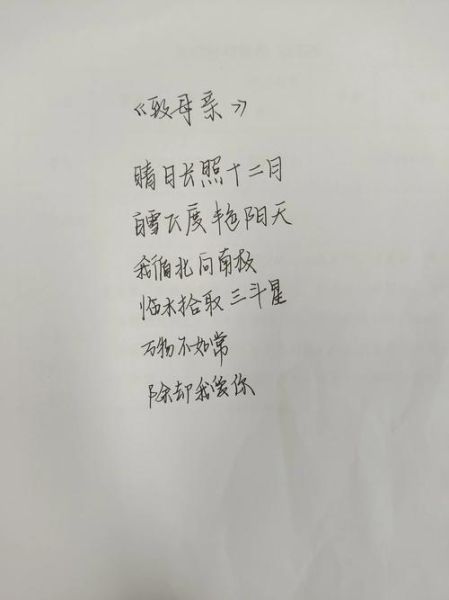 《致母亲》
晴日长照十二月
白雪飞度艳阳天
我偏北向南极
临木拾取三斗星
万物不如常
除却我爱你